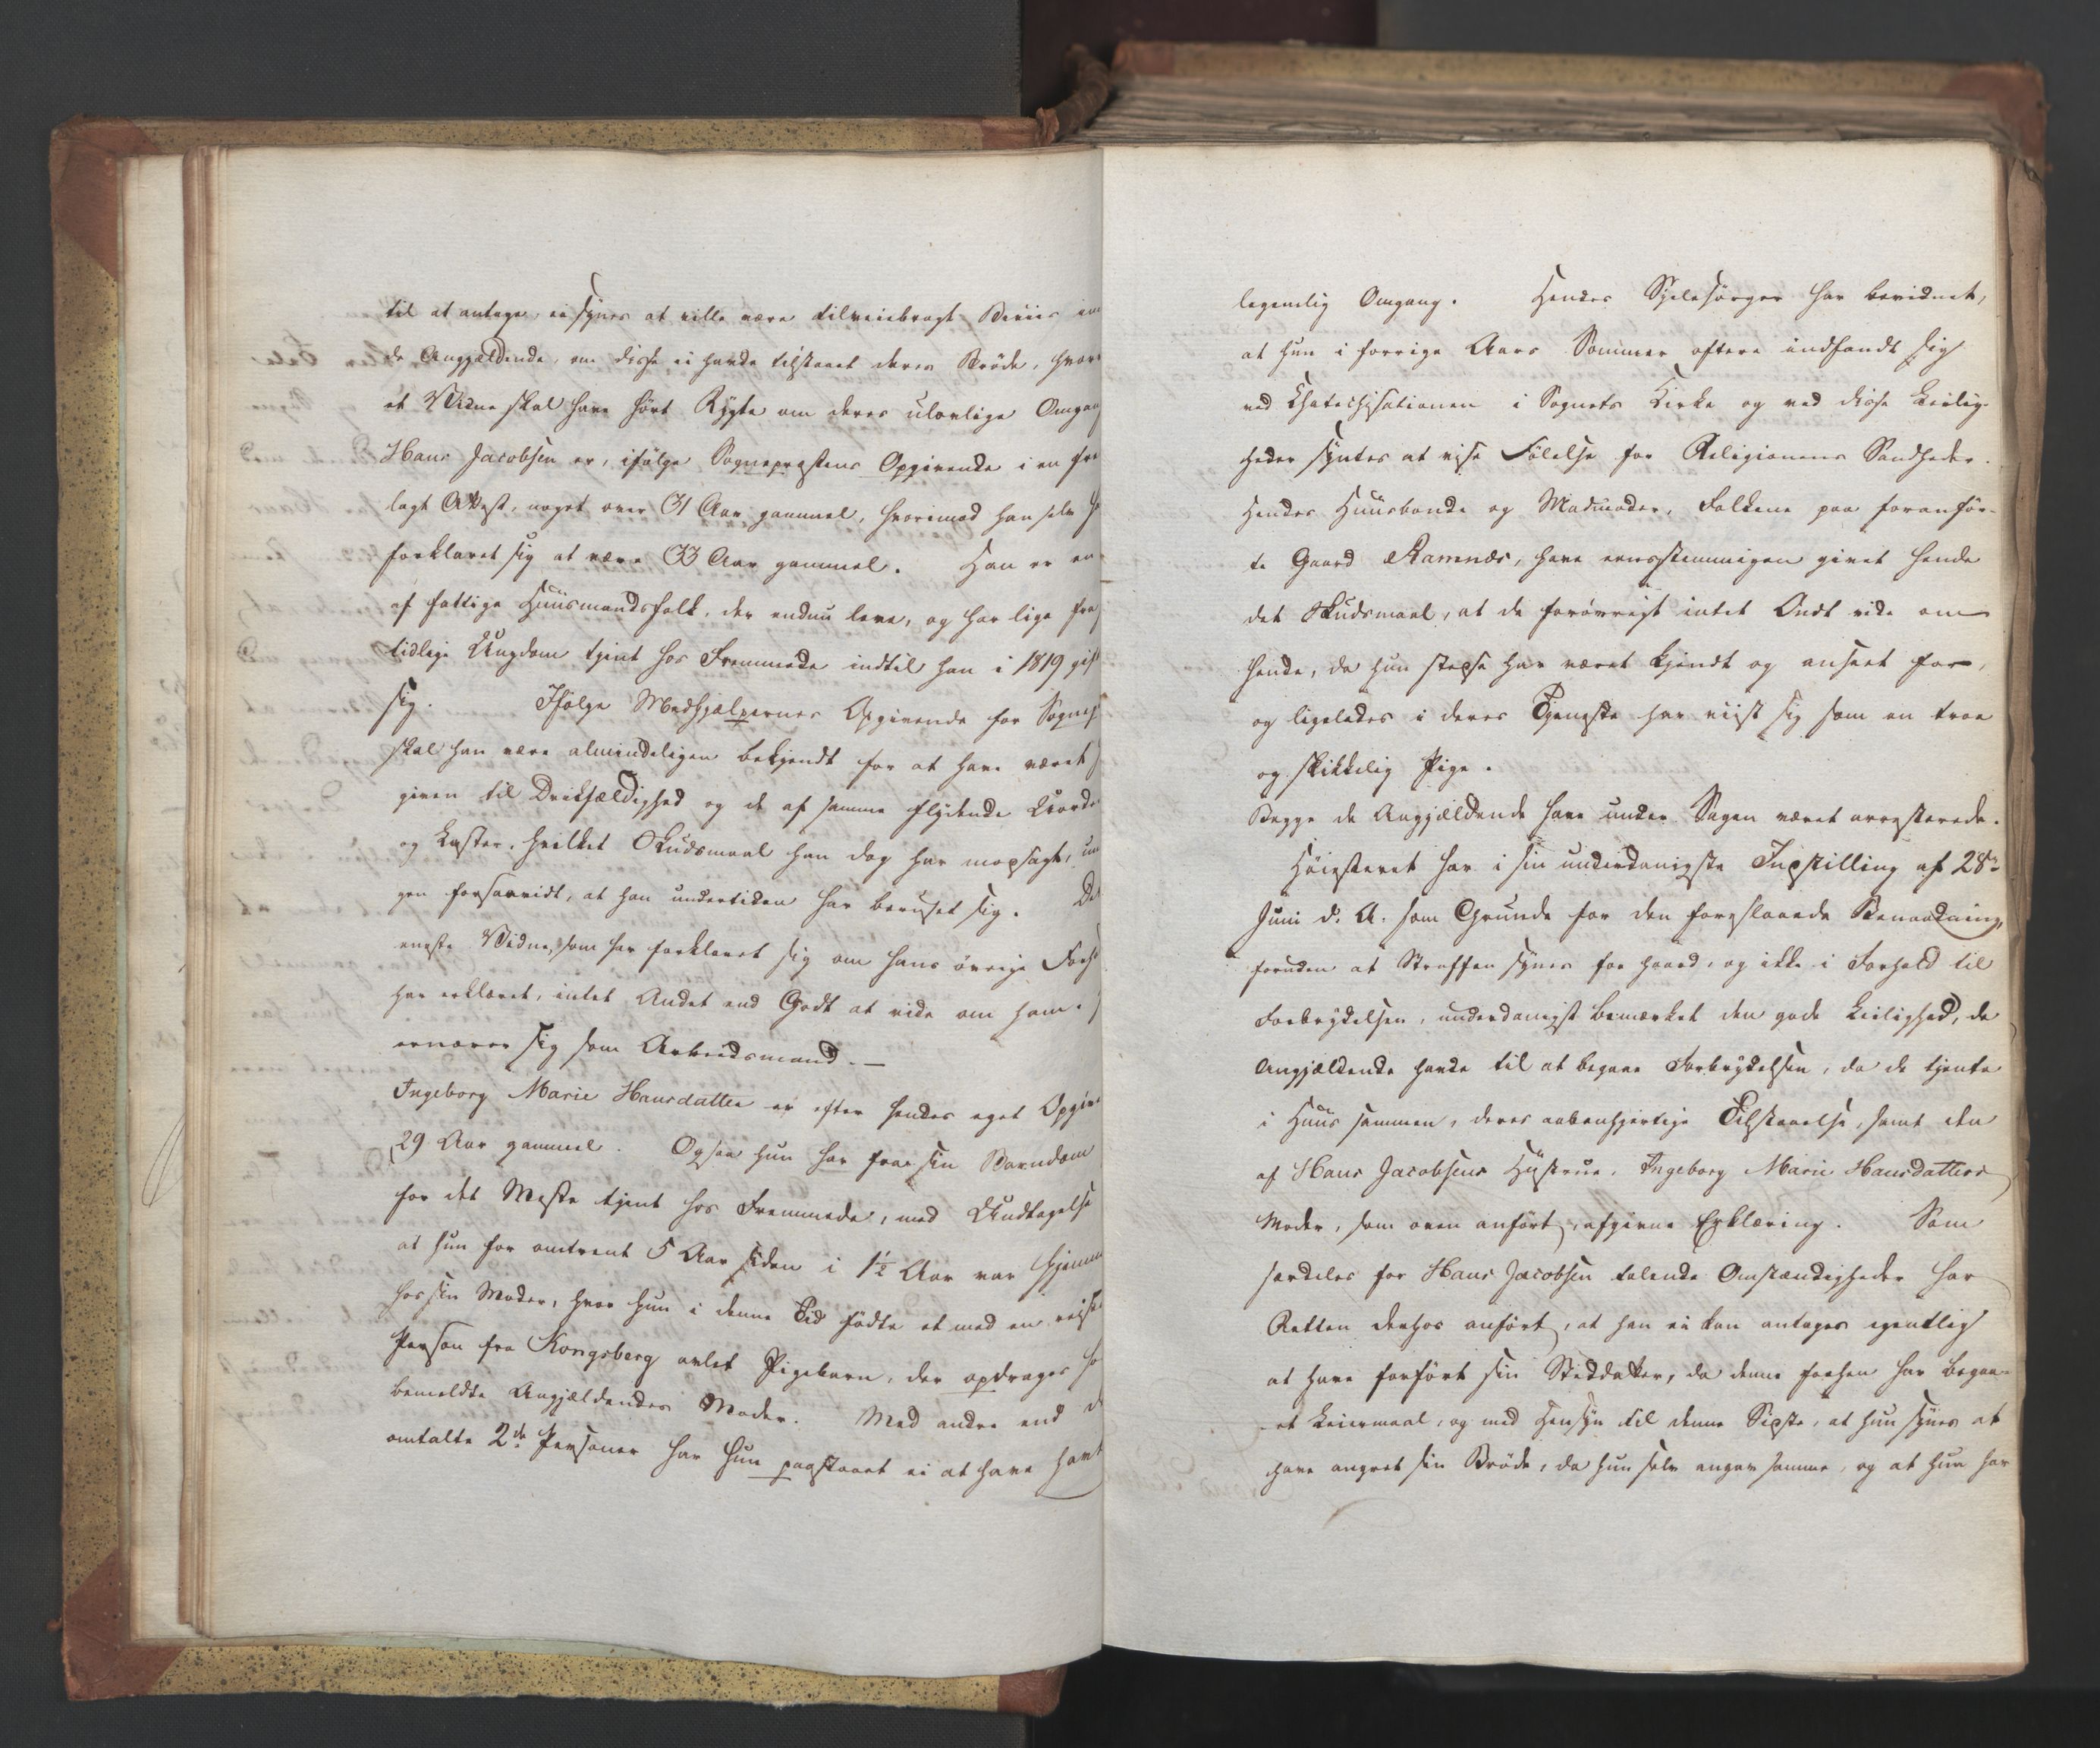 til at antage, ei synes at ville være tilveiebragt Beviis imod
de Angjældende, om disse ei havde tilstaaet deres Brøde, hvor
et Vidne skal have hørt Rygte om deres ulovlige Omgang
Hans Jacobsen er, ifølge Sognepræstens Opgivende i en frem
lagt Attest, noget over 31 Aar gammel, hvorimod han selv
forklaret sig at være 33 Aar gammel. Han er en
af fattige Huusmandsfolk, der endnu leve, og har lige fra
tidlige Ungdom tjent hos Fremmede indtil han i 1819 gift
sig. Ifølge Medhjælpernes Opgivende for Sognep
skal han være almindeligen bekjendt for at have været
given til Drikfældighed og de af samme flydende Uorde
og Laster, hvilket Skudsmaal han dog har modsagt, un
gen forsaavidt, at han undertiden har beruset sig. Det
eneste Vidne, som har forklaret sig om hans øvrige Forh
har erklæret, intet Andet end Godt at vide om ham.
ernærer sig som Arbeidsmand.—
Ingeborg Marie Hansdatter er efter hendes eget Opgive
29 Aar gammel. Ogsaa hun har fra sin Barndom
for det Meste tjent hos Fremmede, med Undtagelse
at hun for omtrent 5 Aar siden i 1½ Aar var hjemme
hos sin Moder, hvor hun i denne Tid fødte et med en
Person fra Kongsberg avlet Pigebarn, der opdrages ho
bemeldte Angjældendes Moder. Med andre end d
omtalte 2de Personer har hun paastaaet ei at have havt
legemlig Omgang. Hendes Sjelesørger har bevidnet,
at hun i forrige Aars Sommer oftere indfandt sig
ved Chatechisationen i Sognets Kirke og ved disse Leilig-
heder syntes at vise Følelse for Religionens Sandheder.
Hendes Huusbonde og Madmoder, Folkene paa foranfør-
te Gaard Ramnæs, have eensstemmigen givet hende
det Skudsmaal, at de forøvrigt intet Ondt vide om
hende, da hun stedse har været kjendt og anseet for,
og ligeledes i deres Tjeneste har viist sig som en troe
og skikkelig Pige.
Begge de Angjældende have under Sagen været arresterede.
Høiesteret har i sin underdanigste Indstilling af 28de
Juni d. A. som Grunde for den foreslaaede Benaadning,
foruden at Straffen synes for haard, og ikke i Forhold til
Forbrydelsen, underdanigst bemærket den gode Leilighed, de
Angjældende havde til at begaae Forbrydelsen, da de tjente
i Huus sammen, deres aabenhjertige Tilstaaelse, samt den
af Hans Jacobsens Hustrue, Ingeborg Marie Hansdatters
Moder, som oven anført, afgivne Erklæring. Som
særdeles for Hans Jacobsen talende Omstændigheder har
Retten derhos anført, at han ei kan antages egentlig
at have forført sin Steddatter, da denne forhen har begaa-
et Leiermaal, og med Hensyn til denne Sidste, at hun synes at
have angret sin Brøde, da hun selv angav samme, og at hun har